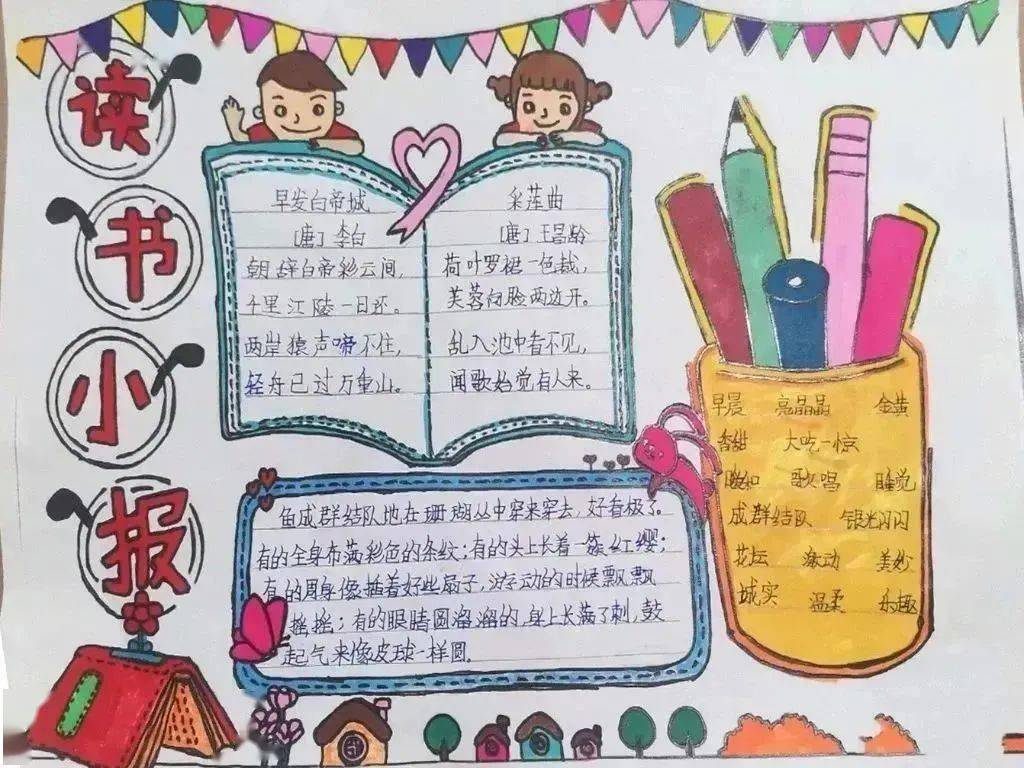 读书小报
早发白帝城
[唐] 李白
朝辞白帝彩云间,
千里江陵一日还。
两岸猿声啼不住,
轻舟已过万重山。
采莲曲
[唐] 王昌龄
荷叶罗裙一色裁,
芙蓉向脸两边开。
乱入池中看不见,
闻歌始觉有人来。
鱼成群结队地在珊瑚丛中穿来穿去,好看极了。
有的全身布满彩色的条纹;有的头上长着一簇红缨;
有的周身像插着好些扇子,游动的时候飘飘
摇摇;有的眼睛圆溜溜的,身上长满了刺,鼓
起气来像皮球一样圆。
早晨 亮晶晶 金黄
香甜 大吃一惊
歌唱 睡觉
成群结队 银光闪闪
花坛 激动 美妙
城实 温柔 乐趣